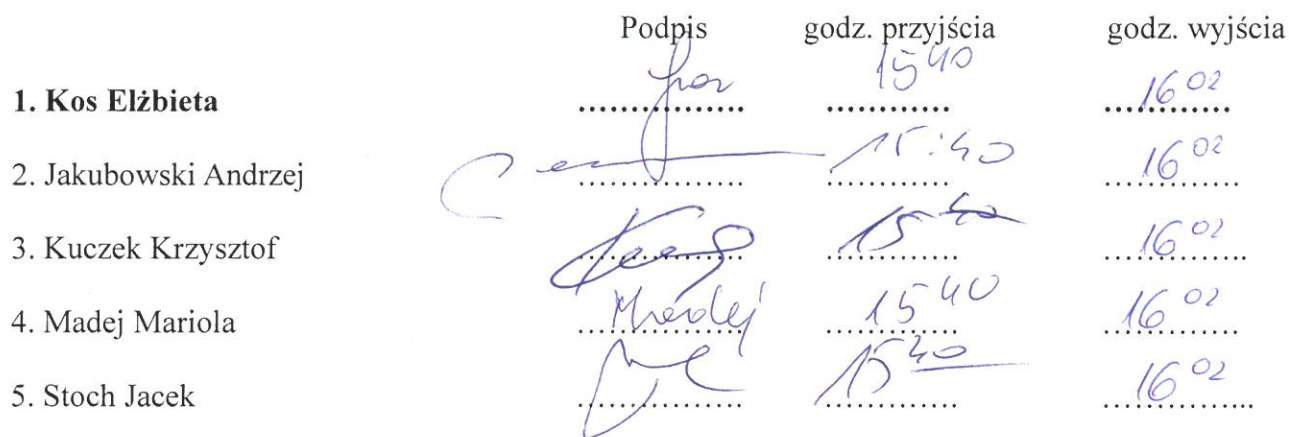 Podpis godz. przyjścia godz. wyjścia
1. Kos Elżbieta .................. 15 40 16 02
2. Jakubowski Andrzej .................. 15:40 16 02
3. Kuczek Krzysztof .................. 15 40 16 02
4. Madej Mariola Madej 15 40 16 02
5. Stoch Jacek .................. 15 40 16 02